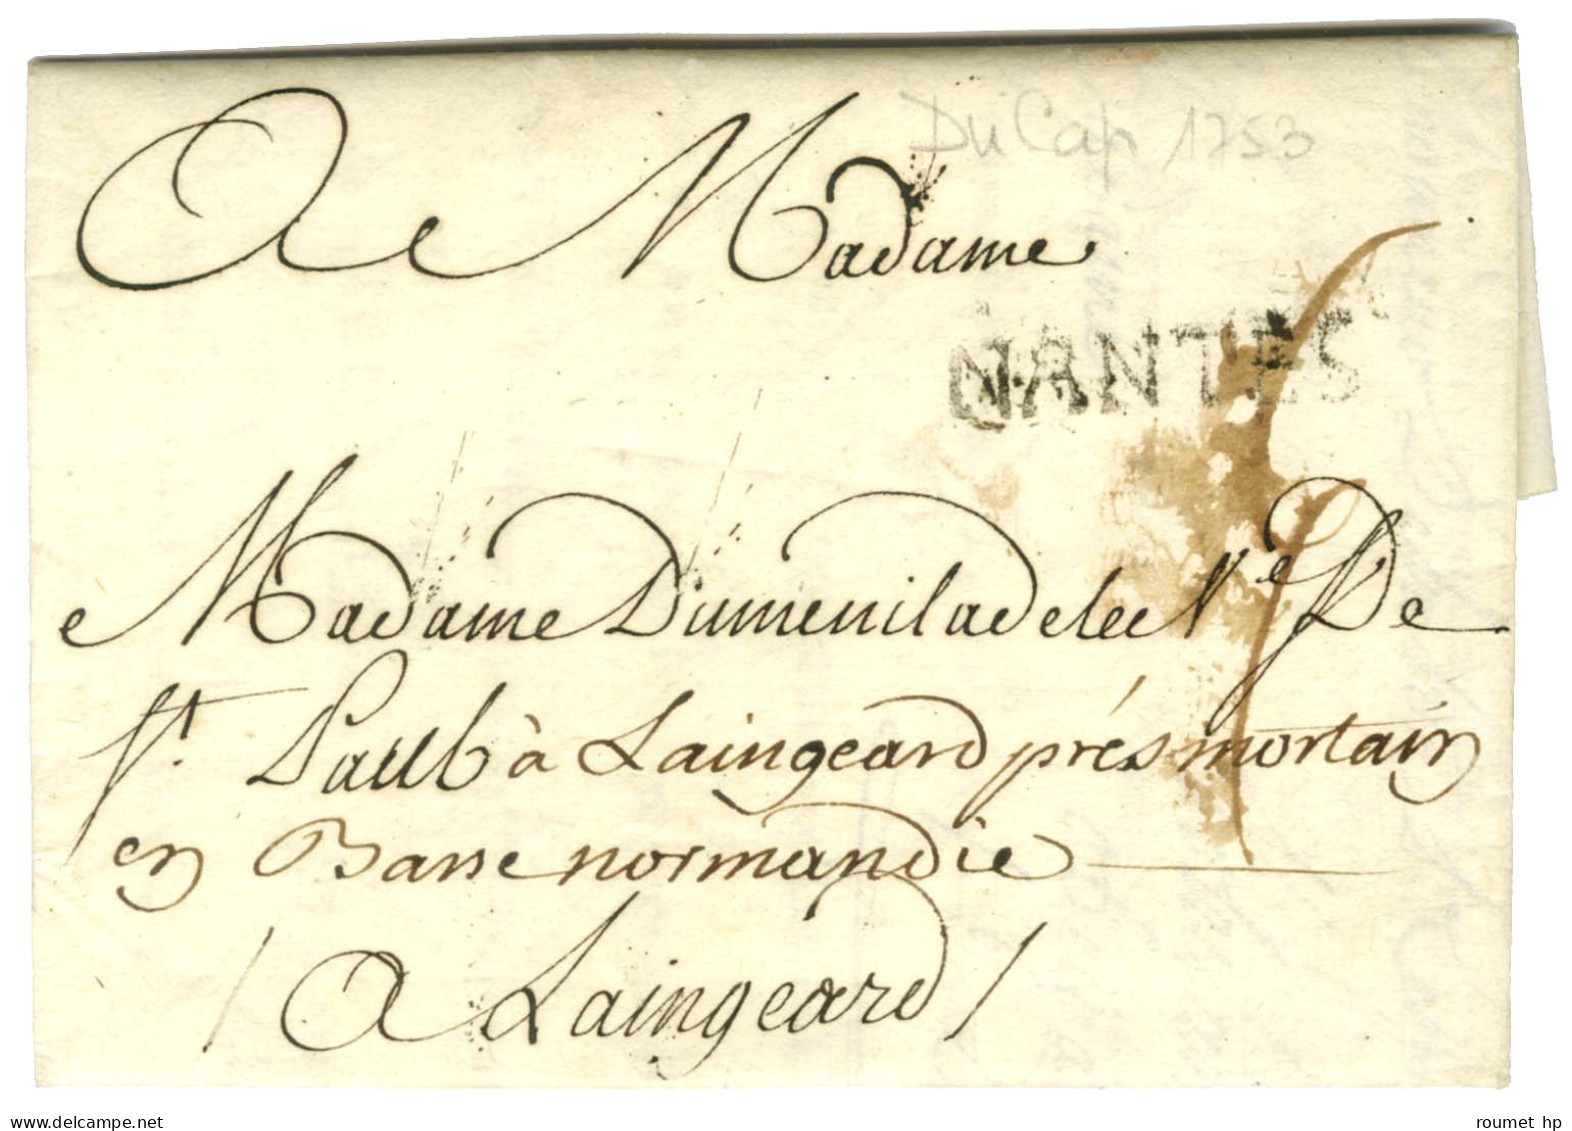 Du Cap 1753
A Madame
NANTES
Madame Dumenil adelée Vᵉ De
Sᵗ. Paul à Laingeard prés mortain
en Basse normandie
/ A Laingeard /
www.delcampe.net
roumet hp